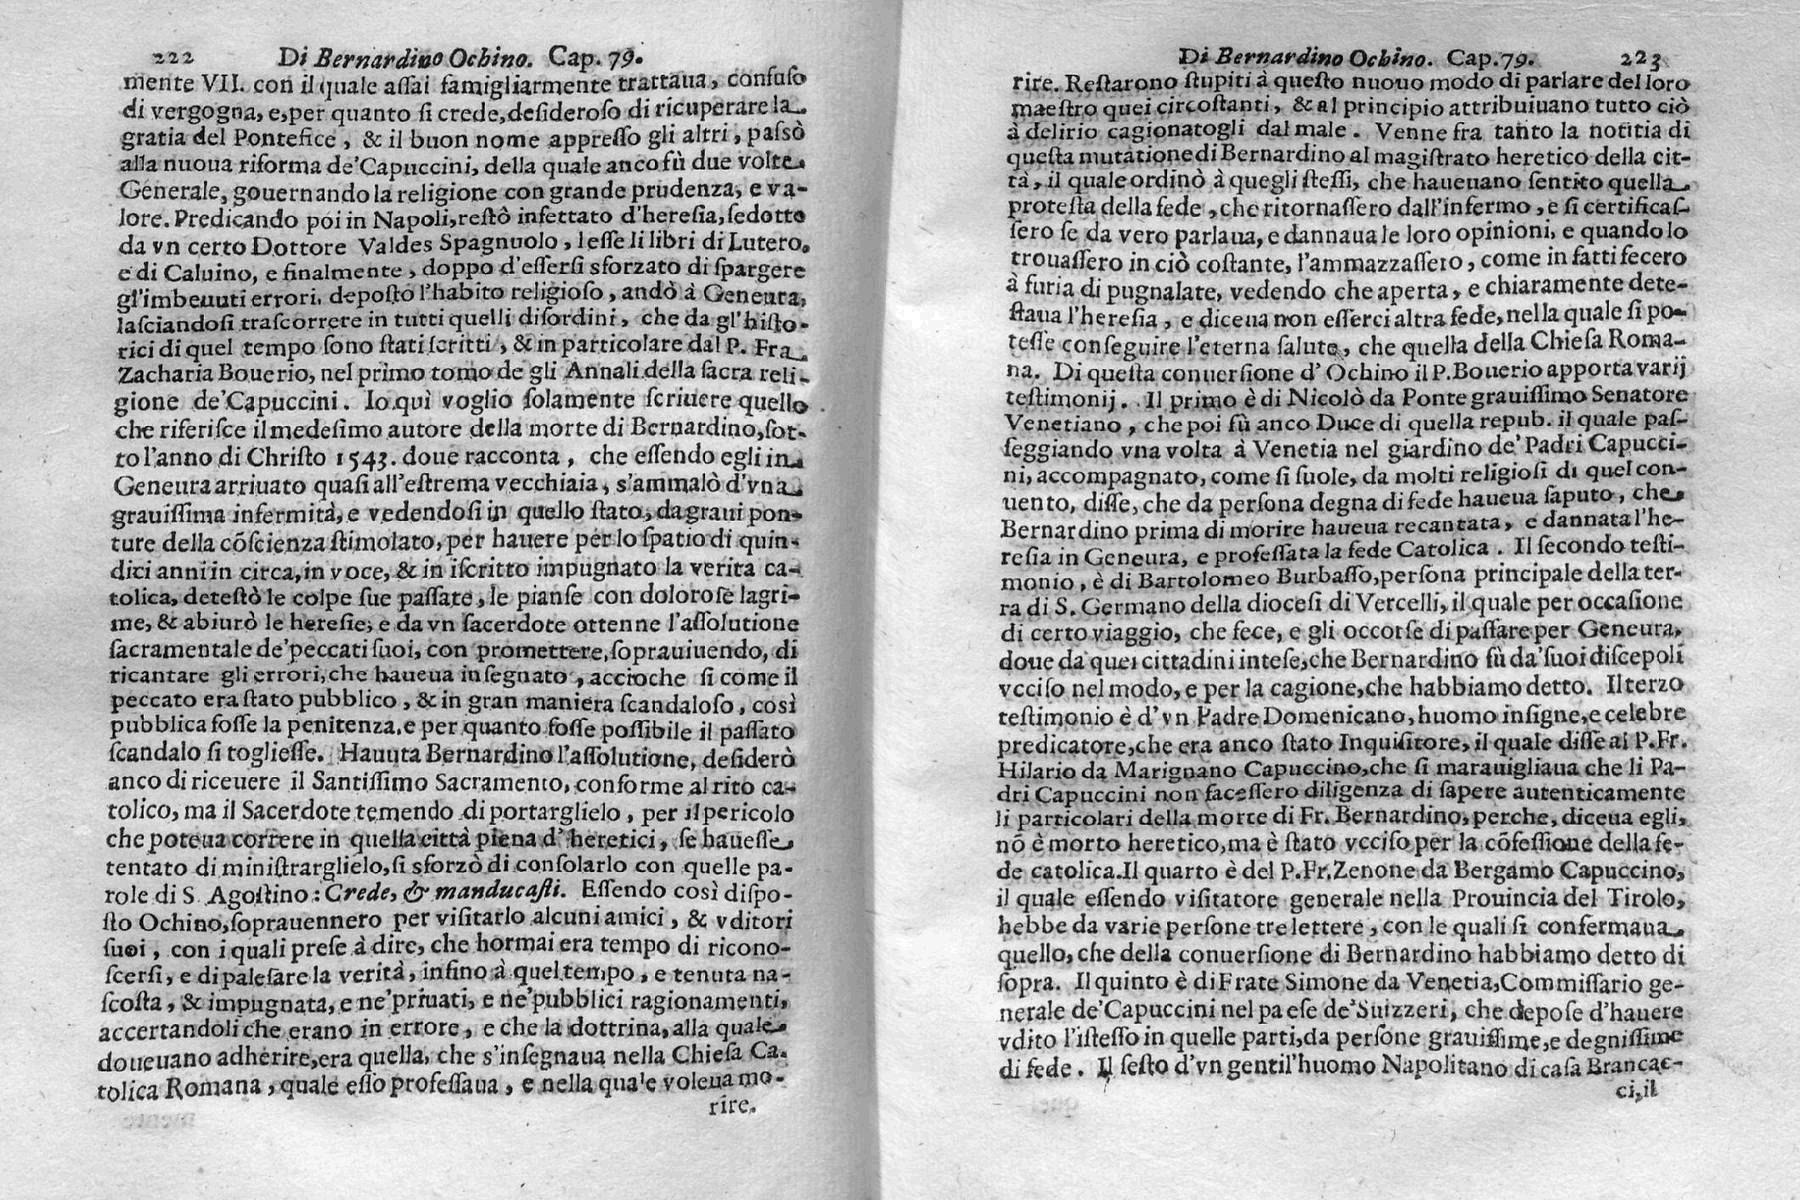 222 Di Bernardino Ochino. Cap. 79.
mente VII. con il quale aſſai famigliarmente trattaua, confuſo
di vergogna, e, per quanto ſi crede, deſideroſo di ricuperare la
gratia del Pontefice, & il buon nome appreſſo gli altri, paſsò
alla nuoua riforma de'Capuccini, della quale anco fù due volte
Generale, gouernando la religione con grande prudenza, e va-
lore. Predicando poi in Napoli, reſtò infettato d'hereſia, ſedotto
da vn certo Dottore Valdes Spagnuolo, leſſe li libri di Lutero,
e di Caluino, e finalmente, doppo d'eſſerſi sforzato di ſpargere
gl'imbeuuti errori, depoſto l'habito religioſo, andò à Geneura,
laſciandoſi traſcorrere in tutti quelli diſordini, che da gl'hiſto-
rici di quel tempo ſono ſtati ſcritti, & in particolare dal P. Fra
Zacharia Bouerio, nel primo tomo de gli Annali della ſacra reli-
gione de'Capuccini. Io quì voglio ſolamente ſcriuere quello
che riferiſce il medeſimo autore della morte di Bernardino, ſot-
to l'anno di Chriſto 1543. doue racconta, che eſſendo egli in
Geneura arriuato quaſi all'eſtrema vecchiaia, s'ammalò d'vna
grauiſſima infermità, e vedendoſi in quello ſtato, da graui pon-
ture della cõſcienza ſtimolato, per hauere per lo ſpatio di quin-
dici anni in circa, in voce, & in iſcritto impugnato la verità ca-
tolica, deteſtò le colpe ſue paſſate, le pianſe con doloroſe lagri-
me, & abiurò le hereſie, e da vn ſacerdote ottenne l'aſſolutione
ſacramentale de'peccati ſuoi, con promettere, ſoprauiuendo, di
ricantare gli errori, che haueua inſegnato, accioche ſi come il
peccato era ſtato pubblico, & in gran maniera ſcandaloſo, così
pubblica foſſe la penitenza, e per quanto foſſe poſſibile il paſſato
ſcandalo ſi toglieſſe. Hauuta Bernardino l'aſſolutione, deſiderò
anco di riceuere il Santiſſimo Sacramento, conforme al rito ca-
tolico, ma il Sacerdote temendo di portarglielo, per il pericolo
che poteua correre in quella città piena d'heretici, ſe haueſſe
tentato di miniſtrarglielo, ſi sforzò di conſolarlo con quelle pa-
role di S. Agoſtino: Crede, & manducaſti. Eſſendo così diſpo-
ſto Ochino, ſoprauennero per viſitarlo alcuni amici, & vditori
ſuoi, con i quali preſe à dire, che hormai era tempo di ricono-
ſcerſi, e di paleſare la verità, infino à quel tempo, e tenuta na-
ſcoſta, & impugnata, e ne'priuati, e ne'pubblici ragionamenti,
accertandoli che erano in errore, e che la dottrina, alla quale
doueuano adherire, era quella, che s'inſegnaua nella Chieſa Ca-
tolica Romana, quale eſſo profeſſaua, e nella quale voleua mo-
rire.
Di Bernardino Ochino. Cap. 79. 223
rire. Reſtarono ſtupiti à queſto nuouo modo di parlare del loro
maeſtro quei circoſtanti, & al principio attribuiuano tutto ciò
à delirio cagionatogli dal male. Venne fra tanto la notitia di
queſta mutatione di Bernardino al magiſtrato heretico della cit-
tà, il quale ordinò à quegli ſteſſi, che haueuano ſentito quella
proteſta della fede, che ritornaſſero dall'infermo, e ſi certificaſ-
ſero ſe da vero parlaua, e dannaua le loro opinioni, e quando lo
trouaſſero in ciò coſtante, l'ammazzaſſero, come in fatti fecero
à furia di pugnalate, vedendo che aperta, e chiaramente dete-
ſtaua l'hereſia, e diceua non eſſerci altra fede, nella quale ſi po-
teſſe conſeguire l'eterna ſalute, che quella della Chieſa Roma-
na. Di queſta conuerſione d'Ochino il P. Bouerio apporta varij
teſtimonij. Il primo è di Nicolò da Ponte grauiſſimo Senatore
Venetiano, che poi fù anco Duce di quella repub. il quale paſ-
ſeggiando vna volta à Venetia nel giardino de'Padri Capucci-
ni, accompagnato, come ſi ſuole, da molti religioſi di quel con-
uento, diſſe, che da perſona degna di fede haueua ſaputo, che
Bernardino prima di morire haueua recantata, e dannata l'he-
reſia in Geneura, e profeſſata la fede Catolica. Il ſecondo teſti-
monio, è di Bartolomeo Burbaſſo, perſona principale della ter-
ra di S. Germano della dioceſi di Vercelli, il quale per occaſione
di certo viaggio, che fece, e gli occorſe di paſſare per Geneura,
doue da quei cittadini inteſe, che Bernardino fù da'ſuoi diſcepoli
vcciſo nel modo, e per la cagione, che habbiamo detto. Il terzo
teſtimonio è d'vn Padre Domenicano, huomo inſigne, e celebre
predicatore, che era anco ſtato Inquiſitore, il quale diſſe al P. Fr.
Hilario da Marignano Capuccino, che ſi marauigliaua che li Pa-
dri Capuccini non faceſſero diligenza di ſapere autenticamente
li particolari della morte di Fr. Bernardino, perche, diceua egli,
nõ è morto heretico, ma è ſtato vcciſo per la cõfeſſione della fe-
de catolica. Il quarto è del P. Fr. Zenone da Bergamo Capuccino,
il quale eſſendo viſitatore generale nella Prouincia del Tirolo,
hebbe da varie perſone tre lettere, con le quali ſi confermaua
quello, che della conuerſione di Bernardino habbiamo detto di
ſopra. Il quinto è di Frate Simone da Venetia, Commiſſario ge-
nerale de'Capuccini nel paeſe de'Suizzeri, che depoſe d'hauere
vdito l'iſteſſo in quelle parti, da perſone grauiſſime, e degniſſime
di fede. Il ſeſto d'vn gentil'huomo Napolitano di caſa Brancac-
ci, il